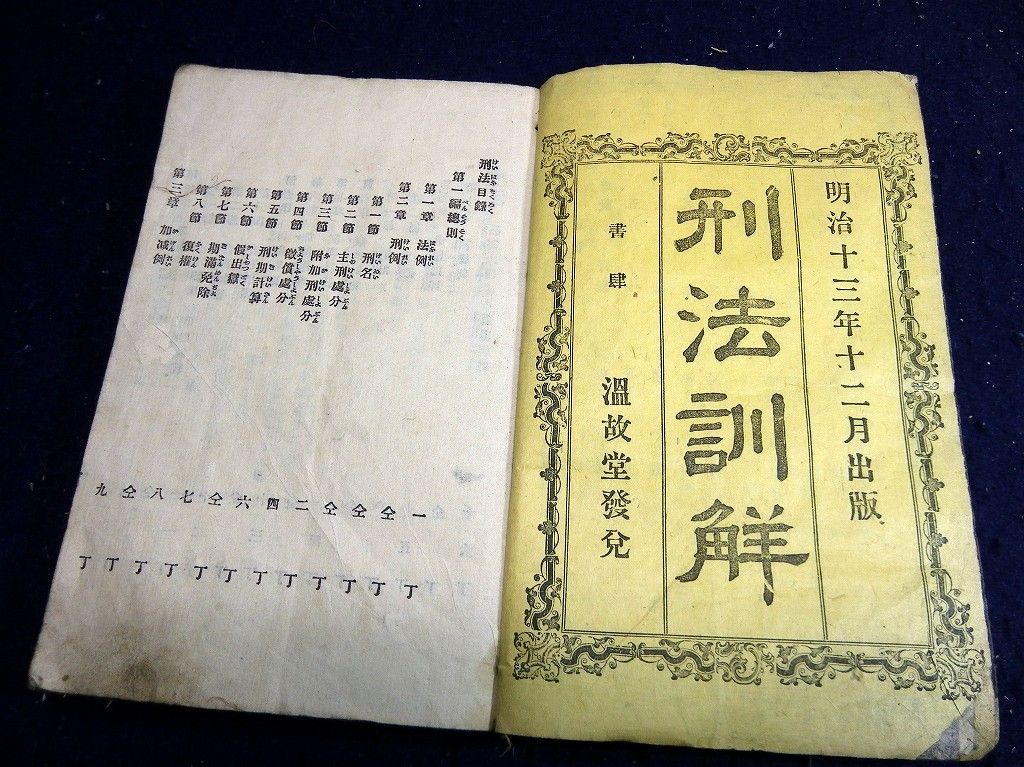 明治十三年十二月出版
刑法訓解
書肆 溫故堂發兌
刑法目錄
第一編總則 一丁
第一章 法例 仝丁
第二章 刑例 仝丁
第一節 刑名 仝丁
第二節 主刑處分 二丁
第三節 附加刑處分 四丁
第四節 徵償處分 六丁
第五節 刑期計算 仝丁
第六節 假出獄 七丁
第七節 期滿免除 八丁
第八節 復權 仝丁
第三章 加减例 九丁